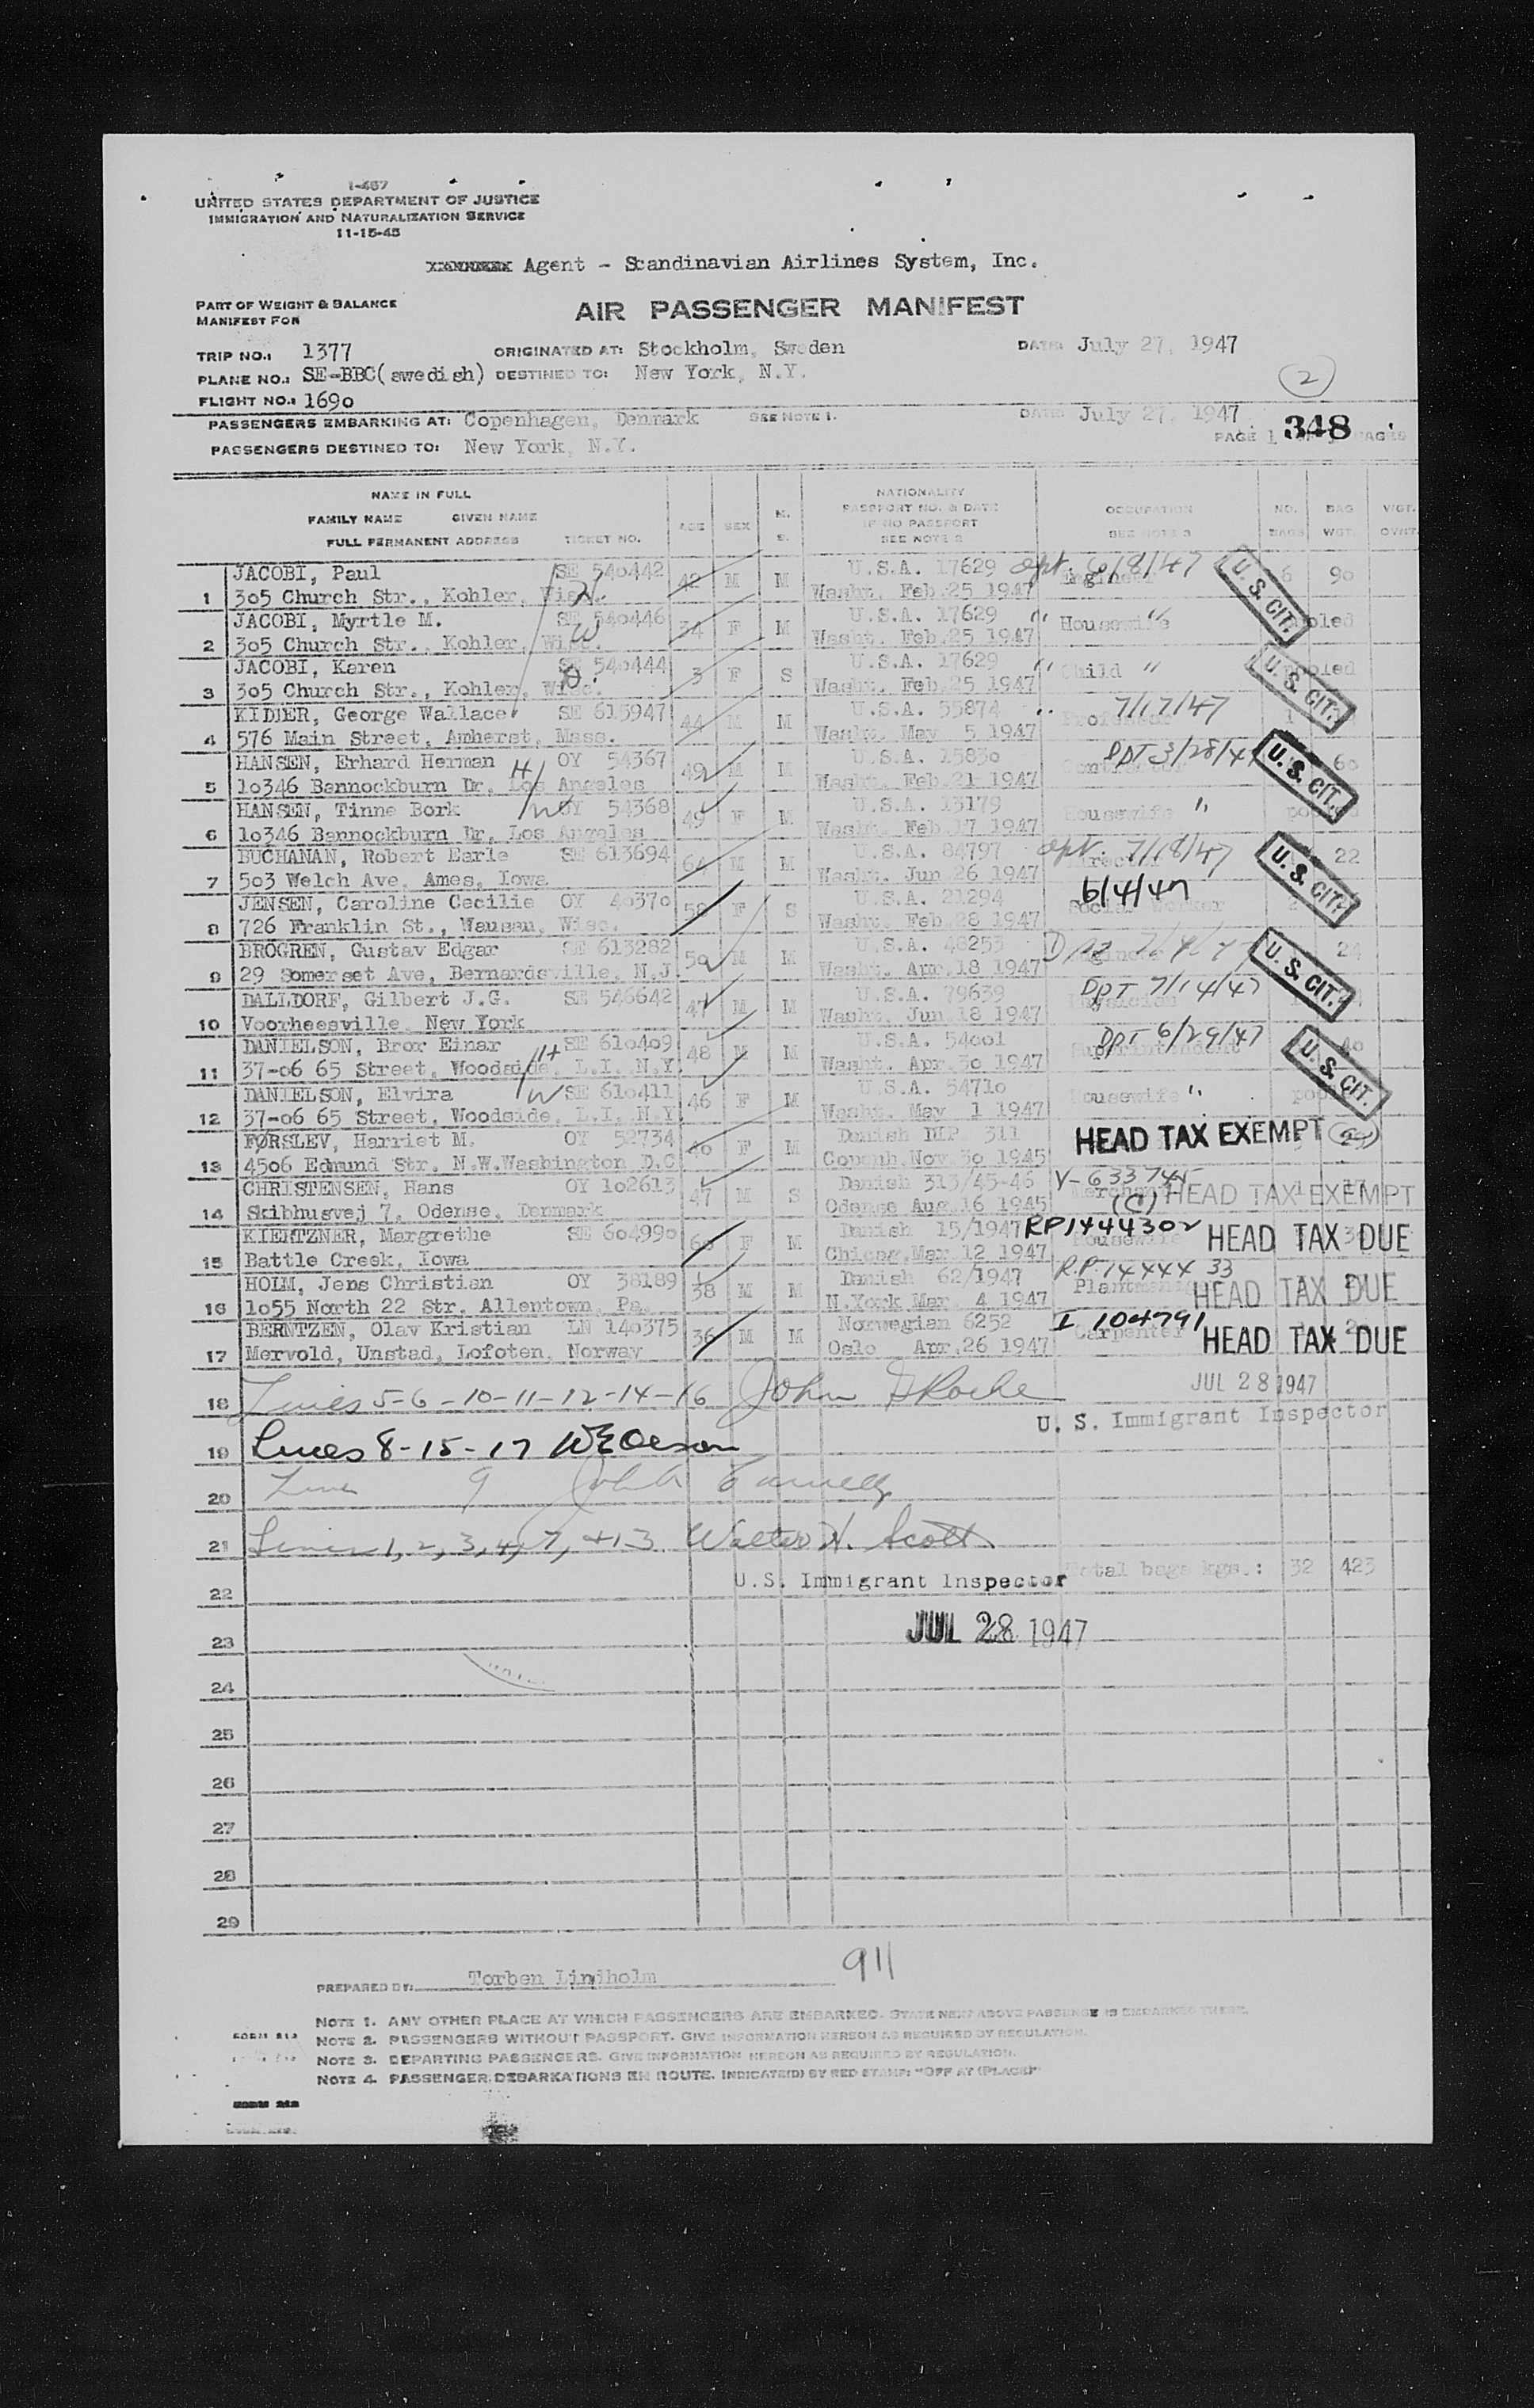 I-467
UNITED STATES DEPARTMENT OF JUSTICE
IMMIGRATION AND NATURALIZATION SERVICE
11-15-45
Agent - Scandinavian Airlines System, Inc.
PART OF WEIGHT & BALANCE
MANIFEST FOR
AIR PASSENGER MANIFEST
TRIP NO.: 1377 ORIGINATED AT: Stockholm, Sweden DATE: July 27, 1947
PLANE NO.: SE-BBC(swedish) DESTINED TO: New York, N.Y.
2
FLIGHT NO.: 1690
PASSENGERS EMBARKING AT: Copenhagen, Denmark SEE NOTE 1. DATE: July 27, 1947
PAGE 1 348 PAGES
PASSENGERS DESTINED TO: New York, N.Y.
NAME IN FULL
FAMILY NAME GIVEN NAME
FULL PERMANENT ADDRESS TICKET NO.
AGE SEX M. S.
NATIONALITY
PASSPORT NO. & DATE
IF NO PASSPORT
SEE NOTE 2
OCCUPATION
SEE NOTE 3
NO. BAGS BAG WGT. WGT. OVHT.
JACOBI, Paul SE 540442 42 M M U.S.A. 17629 6/8/47 U.S. CIT. 6 90
1 305 Church Str., Kohler, Wisc. H Washt. Feb.25 1947
JACOBI, Myrtle M. SE 540446 34 F M U.S.A. 17629 " Housewife " pooled
2 305 Church Str., Kohler, Wisc. W Washt. Feb.25 1947
JACOBI, Karen SE 540444 3 F S U.S.A. 17629 " Child " pooled
3 305 Church Str., Kohler, Wisc. D. Washt. Feb.25 1947 U.S. CIT.
KIDDER, George Wallace SE 615947 44 M M U.S.A. 55874 " Professor 7/17/47 1
4 576 Main Street, Amherst, Mass. Washt. May 5 1947
HANSEN, Erhard Herman OY 54367 49 M M U.S.A. 15830 DPT 3/28/47 U.S. CIT. 60
5 10346 Bannockburn Dr, Los Angeles H Washt. Feb.21 1947
HANSEN, Tinne Bork OY 54368 49 F M U.S.A. 13179 Housewife "
6 10346 Bannockburn Dr, Los Angeles W Washt. Feb.17 1947
BUCHANAN, Robert Earle SE 613694 64 M M U.S.A. 84797 Director 7/18/47 U.S. CIT. 22
7 503 Welch Ave, Ames, Iowa Washt. Jun 26 1947
JENSEN, Caroline Cecilie OY 40370 58 F S U.S.A. 21294 6/4/47 Social Worker
8 726 Franklin St., Wausau, Wisc. Washt. Feb 28 1947
BROGREN, Gustav Edgar SE 613282 50 M M U.S.A. 48253 U.S. CIT. 24
9 29 Somerset Ave, Bernardsville, N.J. Washt. Apr.18 1947
DALLDORF, Gilbert J.G. SE 546642 47 M M U.S.A. 79639 DPT 7/14/47 Physician
10 Voorheesville, New York Washt. Jun 18 1947
DANIELSON, Bror Einar SE 610409 48 M M U.S.A. 54001 DPT 6/29/47 Superintendent U.S. CIT. 40
11 37-06 65 Street, Woodside, L.I. N.Y. H Washt. Apr.30 1947
DANIELSON, Elvira W SE 610411 46 F M U.S.A. 54710 Housewife "
12 37-06 65 Street, Woodside, L.I. N.Y. Washt. May 1 1947
FØRSLEV, Harriet M. OY 52734 40 F M Danish DIP. 311 HEAD TAX EXEMPT
13 4506 Edmund Str. N.W.Washington D.C Copenh.Nov.30 1945
CHRISTENSEN, Hans OY 102613 47 M S Danish 313/45-46 V-633745 Merchant (C) HEAD TAX EXEMPT
14 Skibhusvej 7, Odense, Denmark Odense Aug.16 1945
KIERTZNER, Margrethe SE 604990 F M Danish 15/1947 RP1444302 Housewife HEAD TAX DUE
15 Battle Creek, Iowa Chicag.Mar.12 1947
HOLM, Jens Christian OY 38189 38 M M Danish 62/1947 R.P.14444 33 HEAD TAX DUE
16 1055 North 22 Str. Allentown, Pa. N.York Mar. 4 1947
BERNTZEN, Olav Kristian LN 140375 36 M M Norwegian 6252 I 104791 Carpenter HEAD TAX DUE
17 Mervold, Unstad, Lofoten, Norway Oslo Apr.26 1947
JUL 28 1947
18 Lines 5-6-10-11-12-14-16 John Roche
U. S. Immigrant Inspector
19 Lines 8-15-17 W E Oleson
20 Line 9 John
21 Lines 1, 2, 3, 4, 7, +13 Walter H. Scott
Total bags kgs.: 32 423
U.S. Immigrant Inspector
22
JUL 28 1947
23
24
25
26
27
28
29
911
PREPARED BY: Torben Lindholm
NOTE 1. ANY OTHER PLACE AT WHICH PASSENGERS ARE EMBARKED. STATE NEXT ABOVE PASSENGERS EMBARKED THERE.
FORM 212
NOTE 2. PASSENGERS WITHOUT PASSPORT. GIVE INFORMATION HEREON AS REQUIRED BY REGULATION.
NOTE 3. DEPARTING PASSENGERS. GIVE INFORMATION HEREON AS REQUIRED BY REGULATION.
NOTE 4. PASSENGER DEBARKATIONS EN ROUTE. INDICATE(D) BY RED STAMP: "OFF AT (PLACE)"
FORM 212